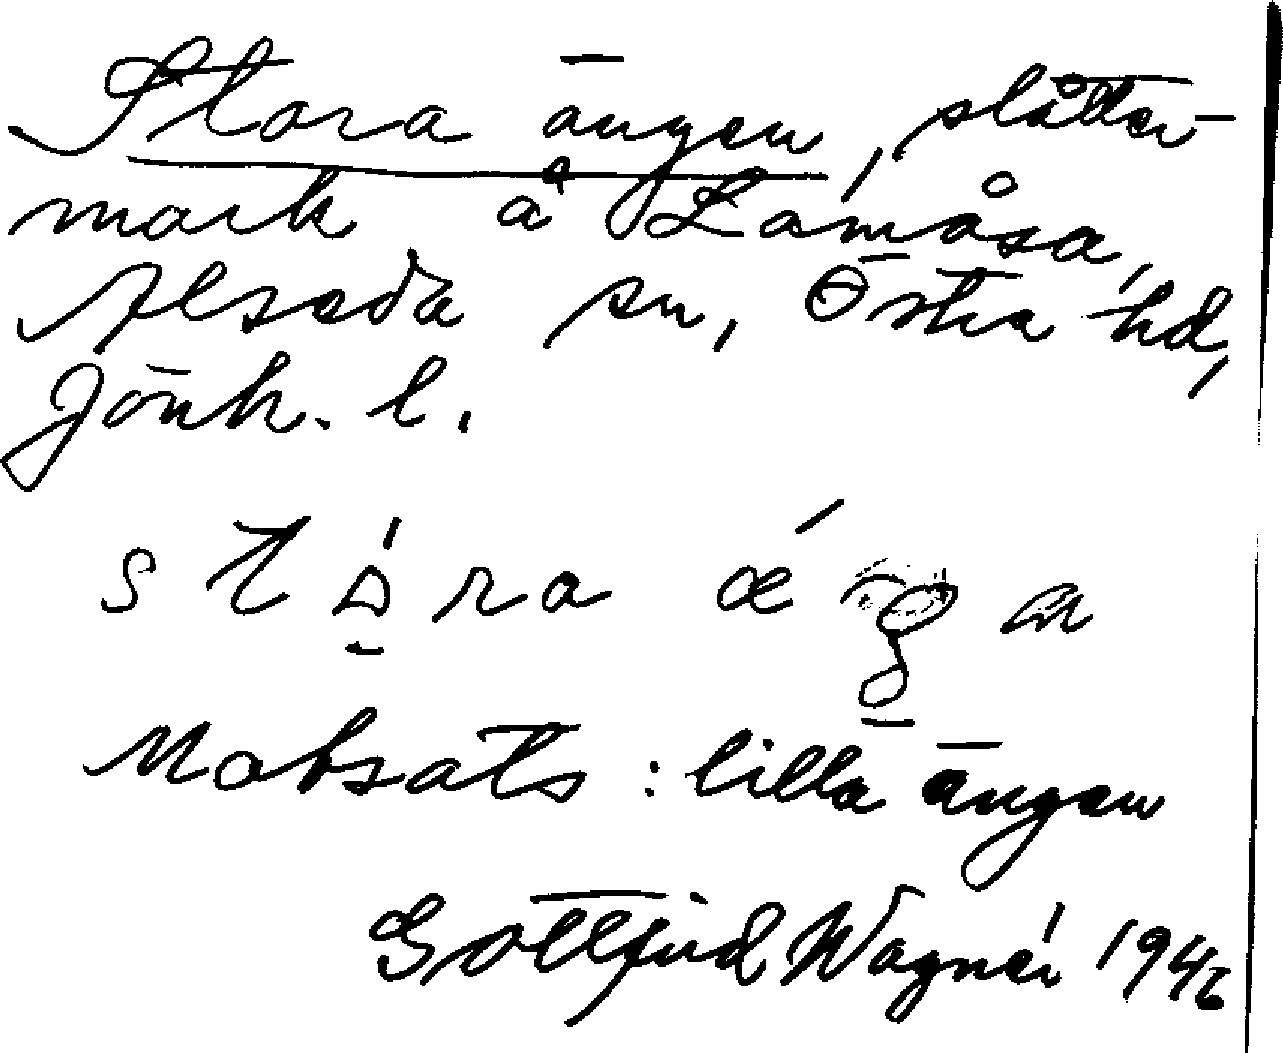 Stora ängen, slåtter-
mark å Låmåsa,
Alseda sn, Östra hd,
Jönk. l.
stára ǽga
Motsats: lilla ängen
Gottfrid Wagnér 1946